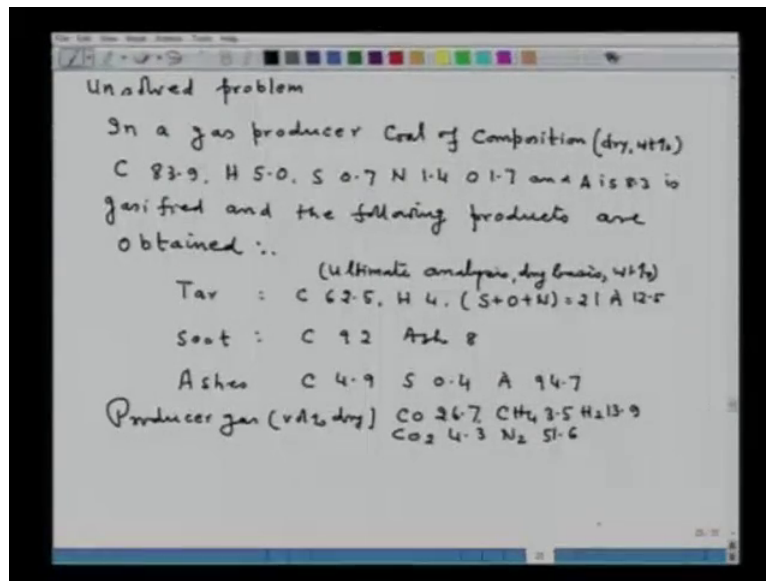 Unsolved problem
In a gas producer Coal of Composition (dry, wt%)
C 83.9, H 5.0, S 0.7 N 1.4 O 1.7 and A is 8.3 is
gasified and the following products are
obtained :.
(Ultimate analysis, dry basis, wt%)
Tar : C 62.5, H 4, (S+O+N) = 21 A 12.5
Soot : C 92 Ash 8
Ashes C 4.9 S 0.4 A 94.7
Producer gas (vol% dry) CO 26.7, CH4 3.5 H2 13.9
CO2 4.3 N2 51.6